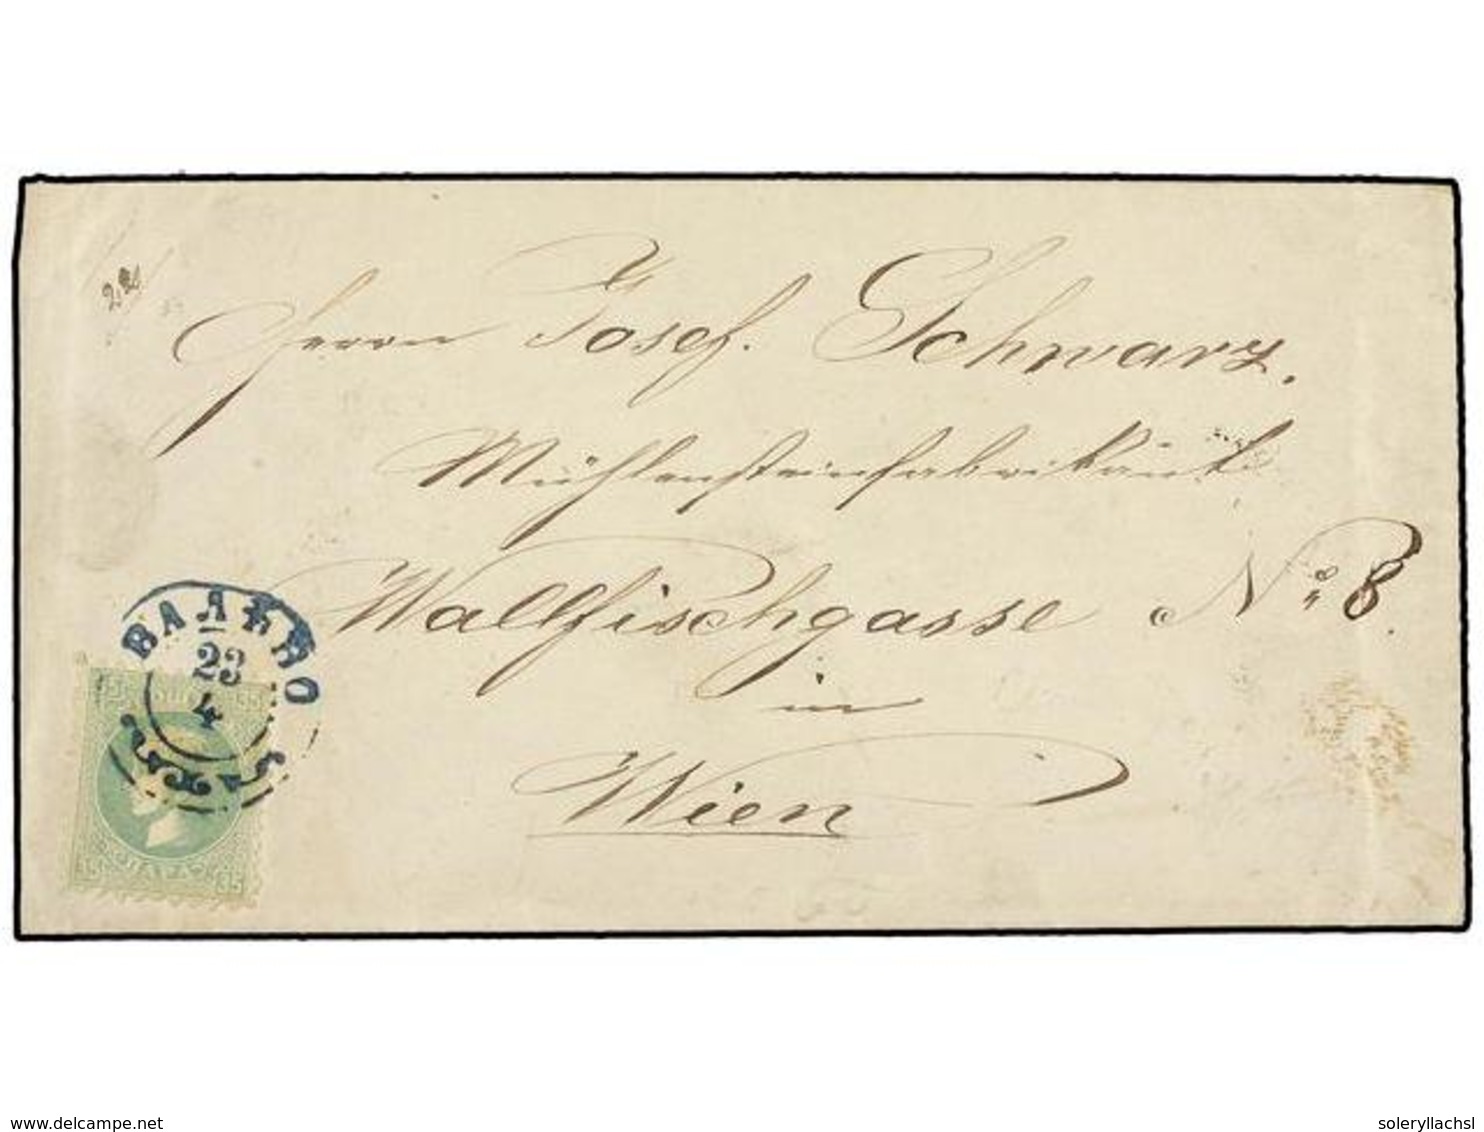 Herrn Josef. Schwarz.
Mühlensteinfabrikant
Wallfischgasse No 8.
in
Wien
ВАЛЕВО
23
4
ПАРА
35
www.delcampe.net
soleryllachsl